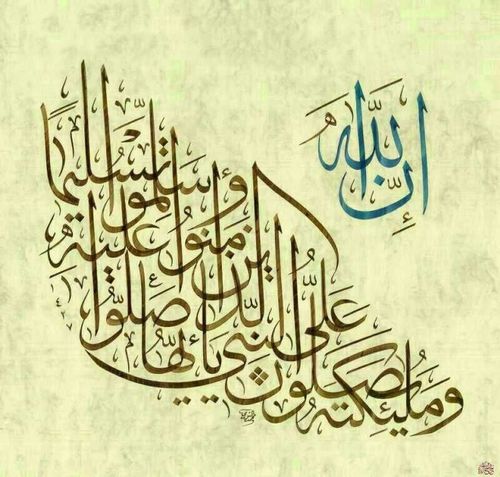 إن الله
وملئكته يصلون
على النبي يأيها
الذين ءامنوا صلوا
عليه وسلموا تسليما